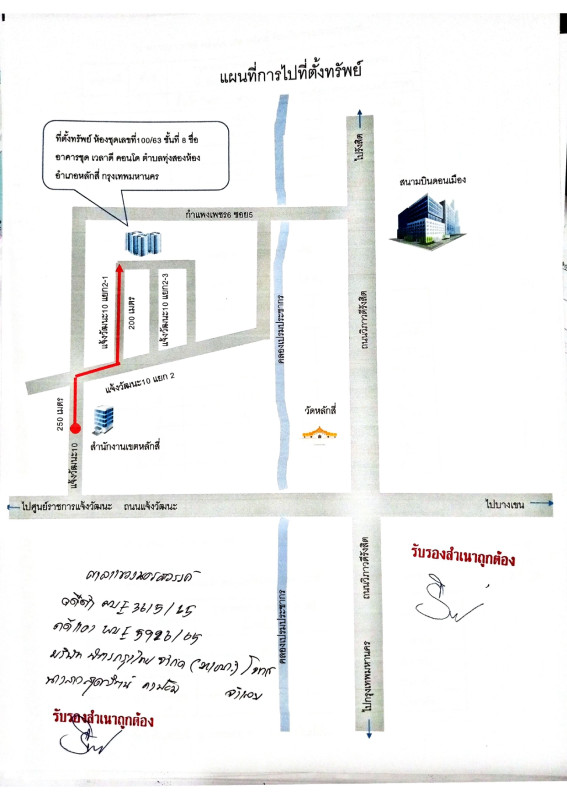 แผนที่การไปที่ตั้งทรัพย์
ที่ตั้งทรัพย์ ห้องชุดเลขที่100/63 ชั้นที่ 8 ชื่อ
อาคารชุด เวลาดี คอนโด ตำบลทุ่งสองห้อง
อำเภอหลักสี่ กรุงเทพมหานคร
ไปรังสิต
สนามบินดอนเมือง
กำแพงเพชร6 ซอย5
แจ้งวัฒนะ10 แยก2-1
200 เมตร
แจ้งวัฒนะ10 แยก2-3
คลองเปรมประชากร
ถนนวิภาวดีรังสิต
แจ้งวัฒนะ10 แยก 2
250 เมตร
วัดหลักสี่
สำนักงานเขตหลักสี่
แจ้งวัฒนะ10
ไปศูนย์ราชการแจ้งวัฒนะ ถนนแจ้งวัฒนะ
ไปบางเขน
ถนนวิภาวดีรังสิต
รับรองสำเนาถูกต้อง
คลองเปรมประชากร
3615/65
5926/65
โจทก์
จำเลย
ไปกรุงเทพมหานคร
รับรองสำเนาถูกต้อง